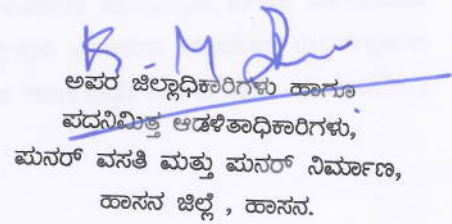 ಅಪರ ಜಿಲ್ಲಾಧಿಕಾರಿಗಳು ಹಾಗೂ
ಪದನಿಮಿತ್ತ ಆಡಳಿತಾಧಿಕಾರಿಗಳು,
ಪುನರ್ ವಸತಿ ಮತ್ತು ಪುನರ್ ನಿರ್ಮಾಣ,
ಹಾಸನ ಜಿಲ್ಲೆ , ಹಾಸನ.